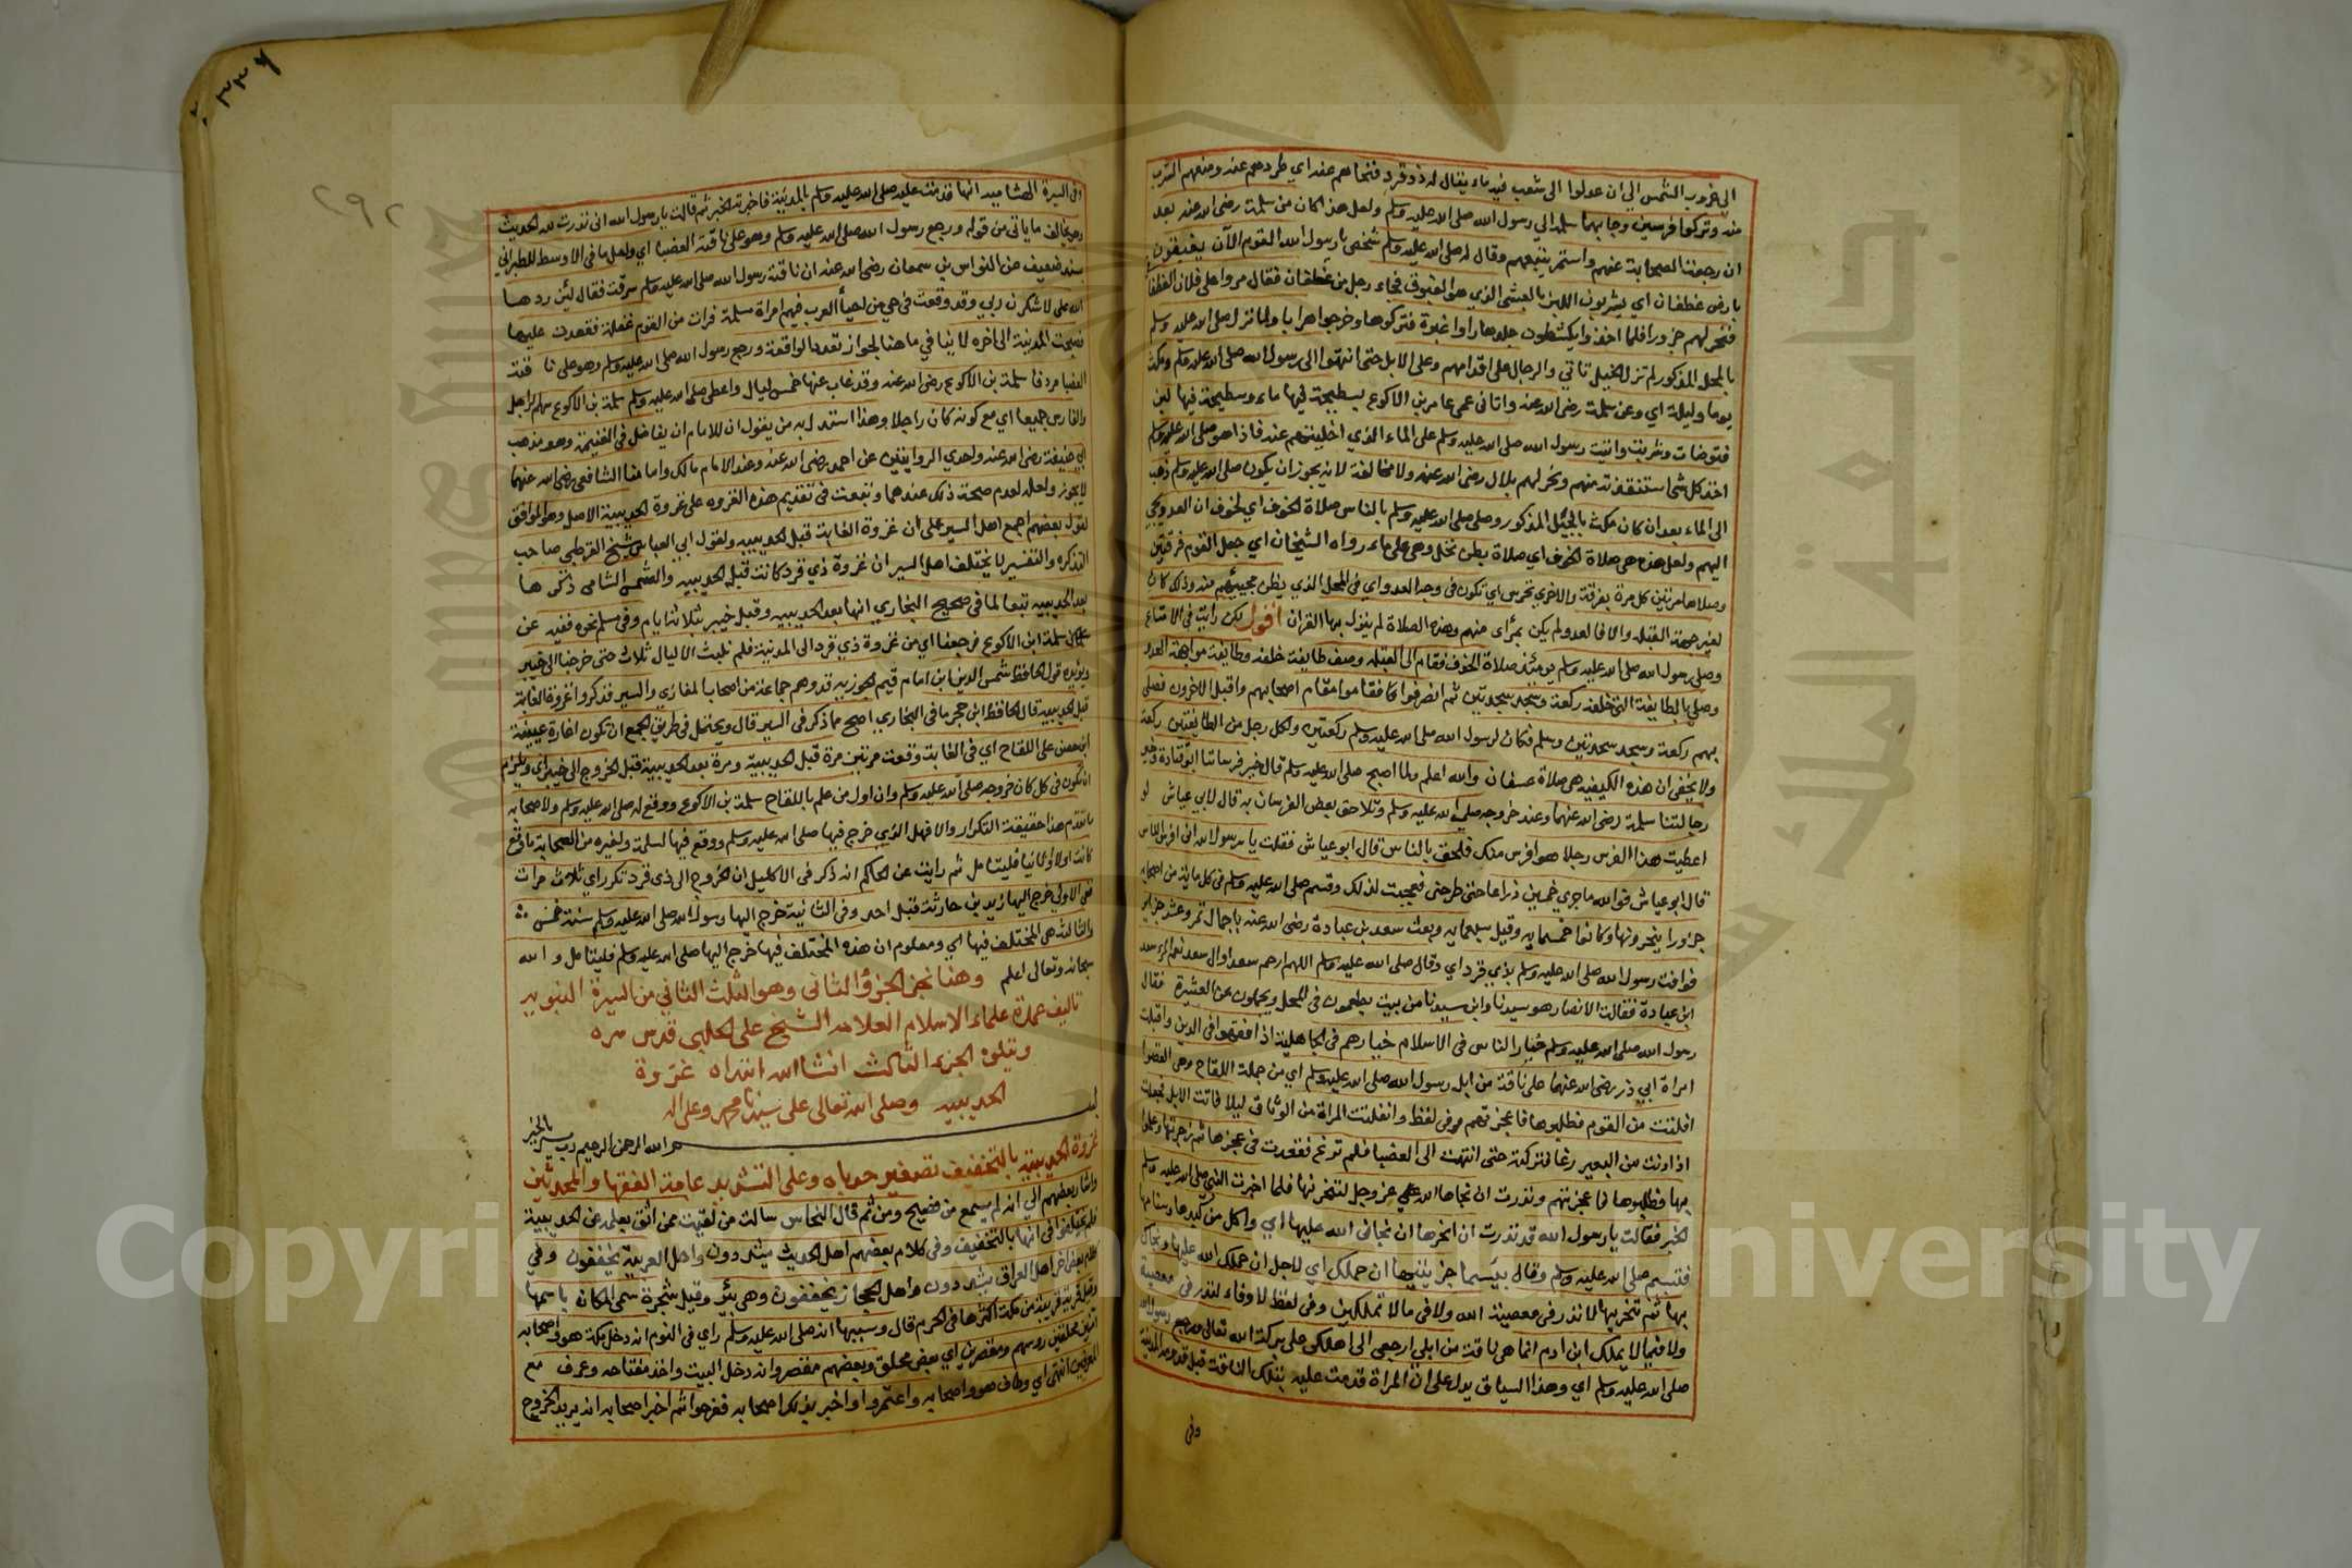 الى غروب الشمس الي ان عدلوا الى شعب فيه ماء يقال له ذو قرد فنحاهم عنه اي طردهم عنه ومنعهم الشرب
منه وتركوا فرسين وجا بهما سلمة الي رسول الله صلى الله عليه وسلم ولعل هذا كان من سلمة رضى الله عنه بعد
ان رجعت الصحابة عنهم واستمر يتبعهم وقال له صلى الله عليه وسلم شخص يا رسول الله القوم الآن يغبقون
بارض غطفان اي يشربون اللبن بالعشي الذي هو الغبوق فجاء رجل من غطفان فقال مروا على فلان الغطفا
فنحر لهم جزورا فلما اخذوا يكشطون جلدها راوا غبرة فتركوها وخرجوا هرابا ولما نزل صلى الله عليه وسلم
بالمحل المذكور لم تزل الخيل تاتي والرجال على اقدامهم وعلى الابل حتى انتهوا الى رسول الله صلى الله عليه وسلم ومكث
يوما وليلة اي وعن سلمة رضى الله عنه واتانى عمى عامر بن الاكوع بسطيحة فيها ماء وسطيحة فيها لبن
فتوضات وشربت واتيت رسول الله صلى الله عليه وسلم على الماء الذي اجليتهم عنه فاذا هو صلى الله عليه وسلم
اخذ كل شى استنقذته منهم ونحر لهم بلال رضى الله عنه ولا مخالفة لانه يجوز ان يكون صلى الله عليه وسلم ذهب
الى الماء بعد ان كان مكث بالجبل المذكور وصلى صلى الله عليه وسلم بالناس صلاة الخوف اي لخوف ان العدو يجي
اليهم ولعل هذه هى صلاة الخوف اي صلاة بطن نخل وهى على ماء رواه الشيخان اي جعل القوم فرقتين
وصلاها مرتين كل مرة بفرقة والاخري تحرس اي تكون في وجه العدو اي في المحل الذي يظن مجيئهم منه وذلك كان
لغير جهة القبلة والا فالعدو لم يكن بمرأى منهم وهذه الصلاة لم ينزل بها القران اقول لكن رايت في الامتاع
وصلى رسول الله صلى الله عليه وسلم يومئذ صلاة الخوف فقام الى القبلة وصف طايفة خلفه وطايفة مواجهة العدو
وصلى بالطايفة التي خلفه ركعة وسجد سجدتين ثم انصرفوا فقاموا مقام اصحابهم واقبل الاخرون فصلى
بهم ركعة وسجد سجدتين وسلم فكان لرسول الله صلى الله عليه وسلم ركعتين ولكل رجل من الطايفتين ركعة
ولا يخفى ان هذه الكيفيه هى صلاة عسفان والله اعلم ولما اصبح صلى الله عليه وسلم قال خير فرساننا ابو قتادة وخير
رجالتنا سلمة رضى الله عنهما وعند خروجه صلى الله عليه وسلم وتلاحق بعض الفرسان به قال لابي عياش لو
اعطيت هذا الفرس رجلا هو افرس منك فلحق بالناس قال ابو عياش فقلت يا رسول الله انى افرس الناس
قال ابو عياش فوالله ما جري خمسين ذراعا حتى طرحنى فعجبت لذلك وقسم صلى الله عليه وسلم في كل ماية من اصحابه
جزورا ينحرونها وكانوا خمسمايه وقيل سبعمايه وبعث سعد بن عبادة رضى الله عنه باحمال تمر وعشر جزاير
فوافت رسول الله صلى الله عليه وسلم بذي قرد اي وقال صلى الله عليه وسلم اللهم ارحم سعدا وال سعد نعم المرء سعد
ابن عبادة فقالت الانصار هو سيدنا وابن سيدنا من بيت يطعمون فى المحل ويحملون عن العشيرة فقال
رسول الله صلى الله عليه وسلم خيار الناس فى الاسلام خيارهم فى الجاهلية اذا فقهوا فى الدين واقبلت
امراة ابي ذر رضى الله عنهما على ناقة من ابل رسول الله صلى الله عليه وسلم اي من جملة اللقاح وهى العضبا
افلتت من القوم فطلبوها فاعجزتهم وفى لفظ وانفلتت المراة من الوثاق ليلا فاتت الابل فجعلت
اذا دنت من البعير رغا فتركته حتى انتهت الى العضبا فلم ترغ فقعدت في عجزها ثم زجرتها وعلموا
بها فطلبوها فاعجزتهم ونذرت ان نجاها الله عز وجل لتنحرنها فلما اخبرت النبي صلى الله عليه وسلم
الخبر فقالت يا رسول الله قد نذرت ان انحرها ان نجانى الله عليها اي واكل من كبدها وسنامها
فتبسم صلى الله عليه وسلم وقال بئسما جزيتيها ان حملك اي لاجل ان حملك الله عليها ونجاك
بها ثم تنحريها لا نذر في معصية الله ولا في ما لا تملكين وفى لفظ لا وفاء لنذر فى معصية
ولا فيما لا يملك ابن ادم انما هى ناقة من ابلي ارجعي الى اهلك على بركة الله تعالى رسول الله
صلى الله عليه وسلم اي وهذا السياق يدل على ان المراة قدمت عليه بتلك الناقة قبل قدومه المدينة
وفى
٣٣٦
٢٩٢
وفى السيرة الهشاميه انها قدمت عليه صلى الله عليه وسلم بالمدينة فاخبرته الخبر ثم قالت يا رسول الله انى نذرت لله الحديث
وهو يخالف ما ياتى من قوله ورجع رسول الله صلى الله عليه وسلم وهو على ناقته العضبا اي ولعل ما فى الاوسط للطبرانى
بسند ضعيف عن النواس بن سمعان رضى الله عنه ان ناقة رسول الله صلى الله عليه وسلم سرقت فقال لئن ردها
الله على لاشكرن ربي وقد وقعت في حي من احيا العرب فيهم امراة مسلمة فرات من القوم غفلة فقعدت عليها
فصبحت المدينة الى اخره لا ينافي ما هنا لجواز تعدد الواقعة ورجع رسول الله صلى الله عليه وسلم وهو على ناقته
العضبا مردفا سلمة بن الاكوع رضى الله عنه وقد غاب عنها خمس ليال واعطى صلى الله عليه وسلم سلمة بن الاكوع سهم الراجل
والفارس جميعا اي مع كونه كان راجلا وهذا استدل به من يقول ان للامام ان يفاضل فى الغنيمة وهو مذهب
ابي حنيفة رضى الله عنه واحدي الروايتين عن احمد رضى الله عنه وعند الامام مالك واما منا الشافعى رضى الله عنهما
لا يجوز ولعله لعدم صحة ذلك عندهما وتبعت في تقديم هذه الغزوه على غزوة الحديبية الاصل وهو الموافق
لقول بعضهم اجمع اهل السير على ان غزوة الغابة قبل الحديبيه ولقول ابي العباس شيخ القرطبي صاحب
التذكره والتفسير لا يختلف اهل السير ان غزوة ذي قرد كانت قبل الحديبيه والشمس الشامى ذكرها
بعد الحديبيه تبعا لما فى صحيح البخاري انها بعد الحديبيه وقبل خيبر بثلاثة ايام وفى مسلم نحوه ففيه عن
سلمة ابن الاكوع فرجعنا اي من غزوة ذي قرد الى المدينة فلم نلبث الا ليال ثلاث حتى خرجنا الى خيبر
ويؤيده قول الحافظ شمس الدين ابن امام قيم الجوزيه قد وهم جماعة من اصحاب المغازي والسير فذكروا غزوة الغابة
قبل الحديبية قال الحافظ ابن حجر ما فى البخاري اصح مما ذكر فى السير قال ويحتمل في طريق الجمع ان تكون اغارة عيينة
ابن حصن على اللقاح اي فى الغابة وقعت مرتين مرة قبل الحديبية ومرة بعد الحديبية قبل الخروج الى خيبر اي ويلزم
ان يكون فى كل كان خروجه صلى الله عليه وسلم وان اول من علم باللقاح سلمة بن الاكوع ووقع له صلى الله عليه وسلم ولاصحابه
ما تقدم هذا حقيقة التكرار والا فهل الذي خرج فيها صلى الله عليه وسلم ووقع فيها لسلمة ولغيره من الصحابة ما وقع
كانت اولا او ثانيا فليتامل ثم رايت عن الحاكم انه ذكر فى الاكليل ان الخروج الى ذى قرد تكرر اي ثلاث مرات
ففى الاولى خرج اليها زيد بن حارثة قبل احد وفى الثانية خرج اليها رسول الله صلى الله عليه وسلم سنة خمس
والثالثة هى المختلف فيها اي ومعلوم ان هذه المختلف فيها خرج اليها صلى الله عليه وسلم فليتامل والله
سبحانه وتعالى اعلم وهنا نجز الجزؤ الثانى وهو الثلث الثاني من السيرة النبويه
تاليف عمدة علماء الاسلام العلامة الشيخ على الحلبي قدس سره
ويتلوه الجزء الثالث انشا الله ابتداه غزوة
الحديبيه وصلى الله تعالى على سيدنا محمد وعلى اله
بسم الله الرحمن الرحيم رب يسر بالخير
غزوة الحديبية بالتخفيف تصغير حدباء وعلى التشديد عامة الفقها والمحدثين
واشار بعضهم الي انه لم يسمع من فصيح ومن ثم قال النحاس سالت من لقيت ممن اثق بعلمه عن الحديبية
فلم يختلفوا فى انها بالتخفيف وفى كلام بعضهم اهل الحديث يشددون واهل العربية يخففون وفي
كلام بعض اخر اهل العراق يشددون واهل الحجاز يخففون وهى بئر وقيل شجرة سمى المكان باسمها
وقيل قرية قريبة من مكة اكثرها فى الحرم قال وسببها انه صلى الله عليه وسلم راي فى النوم انه دخل مكة هو واصحابه
امنين محلقين روسهم ومقصرين اي بعض محلق وبعضهم مقصر وانه دخل البيت واخذ مفتاحه وعرف مع
المعرفين انتهى اي وطاف هو واصحابه واعتمروا واخبر بذلك اصحابه ففرحوا ثم اخبر اصحابه انه يريد الخروج
جامعة الملك سعود
Copyright © King Saud University